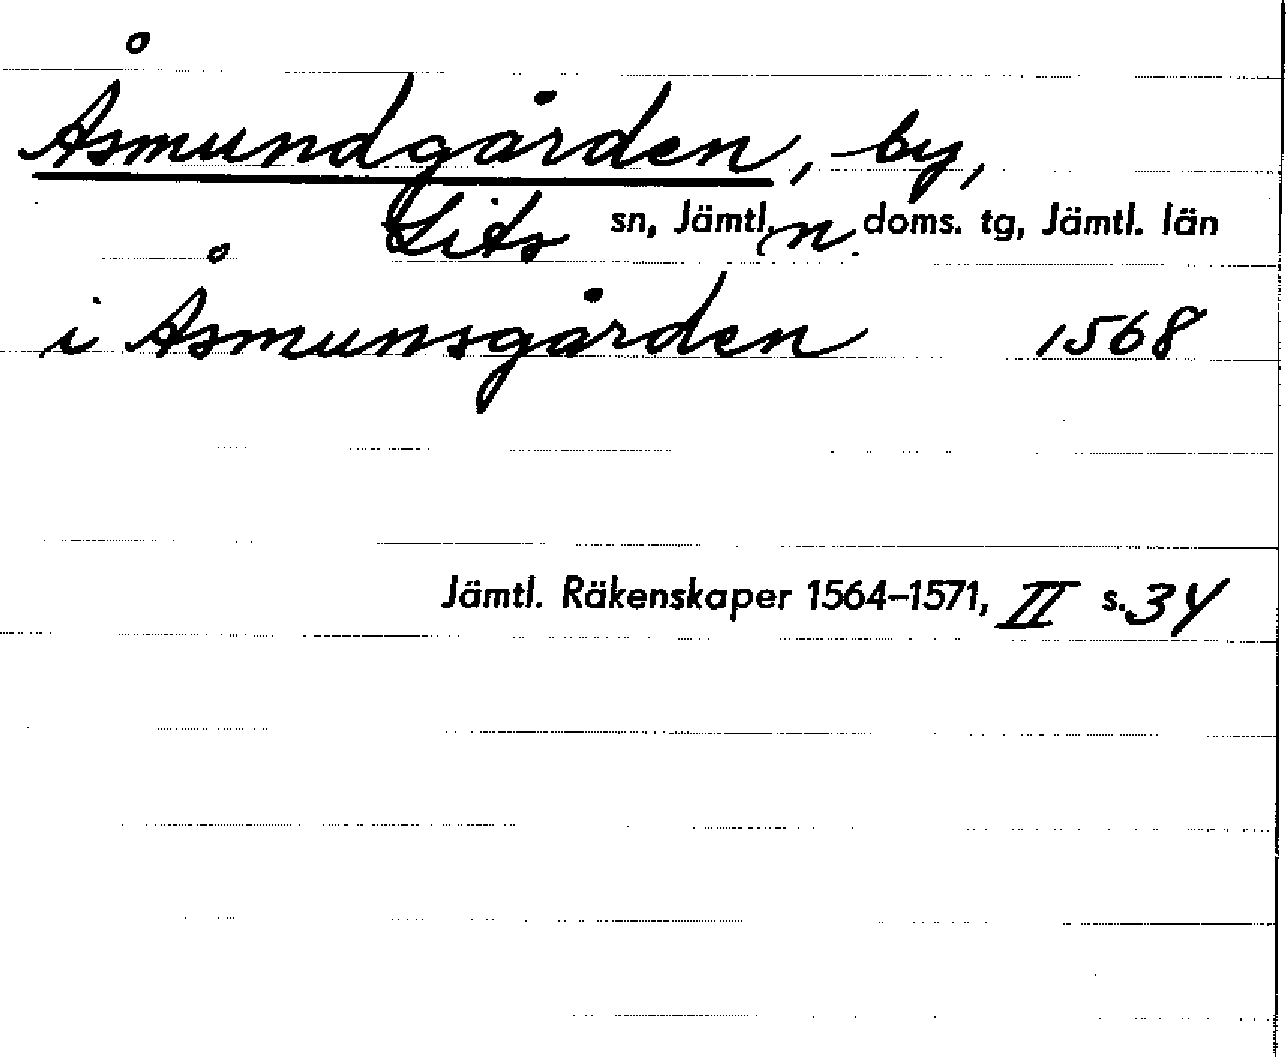 Åsmundgården, by,
Lits sn, Jämtl. n. doms. tg, Jämtl. län
i Åsmunsgården 1568
Jämtl. Räkenskaper 1564–1571, II s. 34